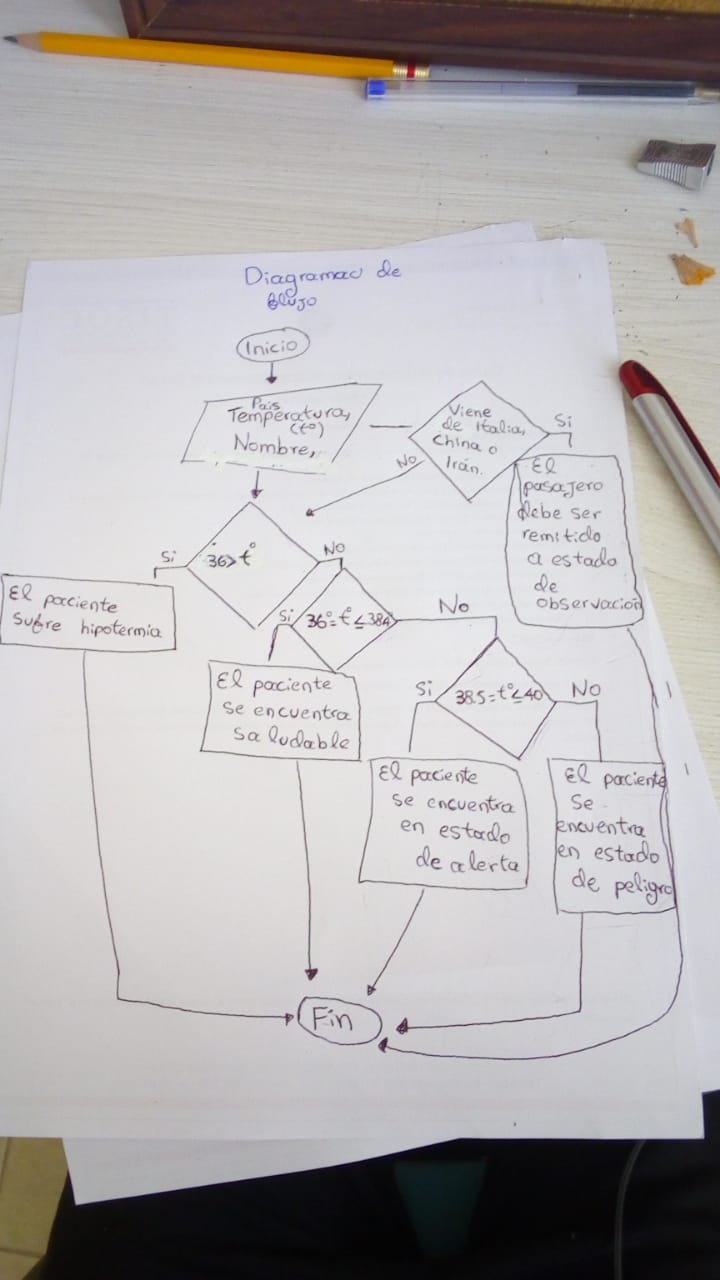 Diagramac de
flujo
Inicio
Pais
Temperatura,
(t°)
Nombre,
Viene
de Italia,
China o
Irán.
Si
No
El
pasajero
debe ser
remitido
a estado
de
observación
36>t°
Si
No
El paciente
sufre hipotermia
36°=t°≤38.4
Si
No
El paciente
se encuentra
saludable
38.5=t°≤40
Si
No
El paciente
se encuentra
en estado
de alerta
El paciente
se
encuentra
en estado
de peligro
Fin